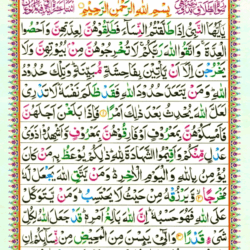 بِسْمِ اللّٰهِ الرَّحْمٰنِ الرَّحِيْمِ
يٰۤاَيُّهَا النَّبِيُّ اِذَا طَلَّقْتُمُ النِّسَآءَ فَطَلِّقُوْهُنَّ لِعِدَّتِهِنَّ وَاَحْصُوا
الْعِدَّةَ ۚ وَاتَّقُوا اللّٰهَ رَبَّكُمْ ۚ لَا تُخْرِجُوْهُنَّ مِنْۢ بُيُوْتِهِنَّ وَلَا
يَخْرُجْنَ اِلَّاۤ اَنْ يَّاْتِيْنَ بِفَاحِشَةٍ مُّبَيِّنَةٍ ؕ وَتِلْكَ حُدُوْدُ
اللّٰهِ ؕ وَمَنْ يَّتَعَدَّ حُدُوْدَ اللّٰهِ فَقَدْ ظَلَمَ نَفْسَهٗ ؕ لَا تَدْرِيْ
لَعَلَّ اللّٰهَ يُحْدِثُ بَعْدَ ذٰلِكَ اَمْرًا ۝ فَاِذَا بَلَغْنَ اَجَلَهُنَّ
فَاَمْسِكُوْهُنَّ بِمَعْرُوْفٍ اَوْ فَارِقُوْهُنَّ بِمَعْرُوْفٍ وَّاَشْهِدُوْا ذَوَيْ
عَدْلٍ مِّنْكُمْ وَاَقِيْمُوا الشَّهَادَةَ لِلّٰهِ ؕ ذٰلِكُمْ يُوْعَظُ بِهٖ مَنْ كَانَ
يُؤْمِنُ بِاللّٰهِ وَالْيَوْمِ الْاٰخِرِ ۬ وَمَنْ يَّتَّقِ اللّٰهَ يَجْعَلْ لَّهٗ
مَخْرَجًا ۝ وَّيَرْزُقْهُ مِنْ حَيْثُ لَا يَحْتَسِبُ ؕ وَمَنْ يَّتَوَكَّلْ
عَلَى اللّٰهِ فَهُوَ حَسْبُهٗ ؕ اِنَّ اللّٰهَ بَالِغُ اَمْرِهٖ ؕ قَدْ جَعَلَ اللّٰهُ لِكُلِّ
شَيْءٍ قَدْرًا ۝ وَالّٰٓـِٔيْ يَئِسْنَ مِنَ الْمَحِيْضِ مِنْ نِّسَآئِكُمْ